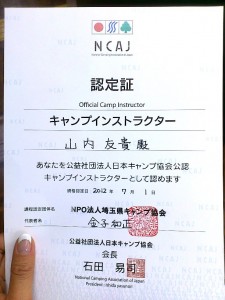 NCAJ
認定証
Official Camp Instructor
キャンプインストラクター
山内 友貴 殿
あなたを公益社団法人日本キャンプ協会公認
キャンプインストラクターとして認めます
課程認定日 2012 年 7 月 1 日
課程認定団体名 NPO法人埼玉県キャンプ協会
代表者 金子和正
公益社団法人日本キャンプ協会
会長
石田 易司
National Camping Association of Japan